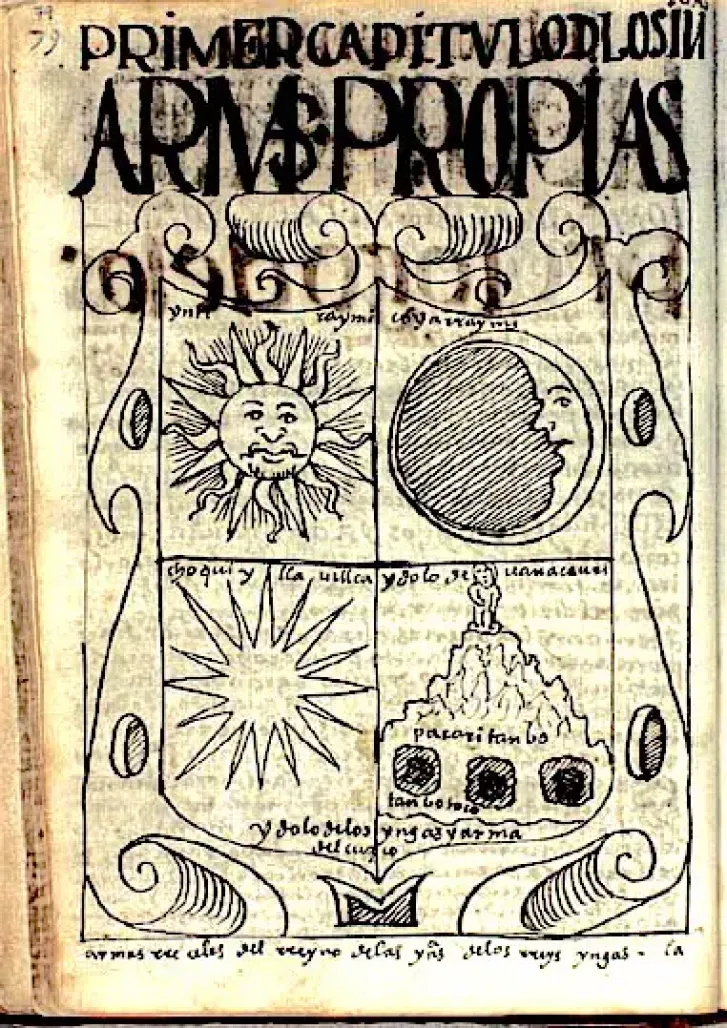 79
PRIMER CAPITVLO D LOS IN
ARMAS PROPIAS
ynti raymi coya rraymi
choqui ylla uillca ydolo de uanacauri
pacaritanbo
tanbotoco
ydolo de los yngas y arma
del cuzco
armas rreales del rreyno de las ynas de los rreys yngas - la